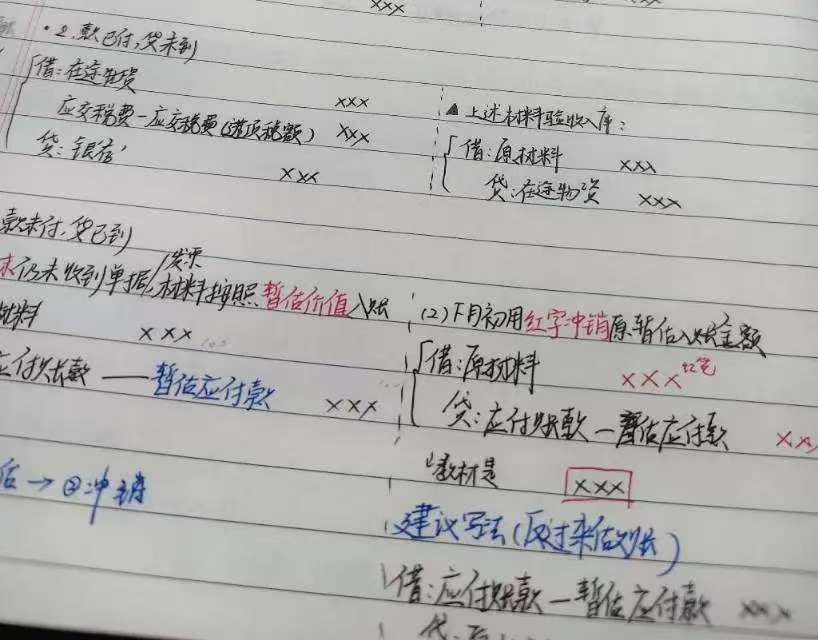 xxx
·2.款已付,货未到
借:在途物资
xxx
应交税费-应交税费(进项税额) xxx
贷:银行
xxx
▲上述材料验收入库:
借:原材料 xxx
贷:在途物资 xxx
款未付,货已到
末仍未收到单据/发票,材料按照暂估价值入账
材料
xxx
应付账款——暂估应付款 xxx
估→②冲销
(2)下月初用红字冲销原暂估入账金额
借:原材料 xxx红笔
贷:应付账款—暂估应付款 xxx
教材是 xxx
建议写法(反过来做账)
借:应付账款—暂估应付款 xxx
贷: